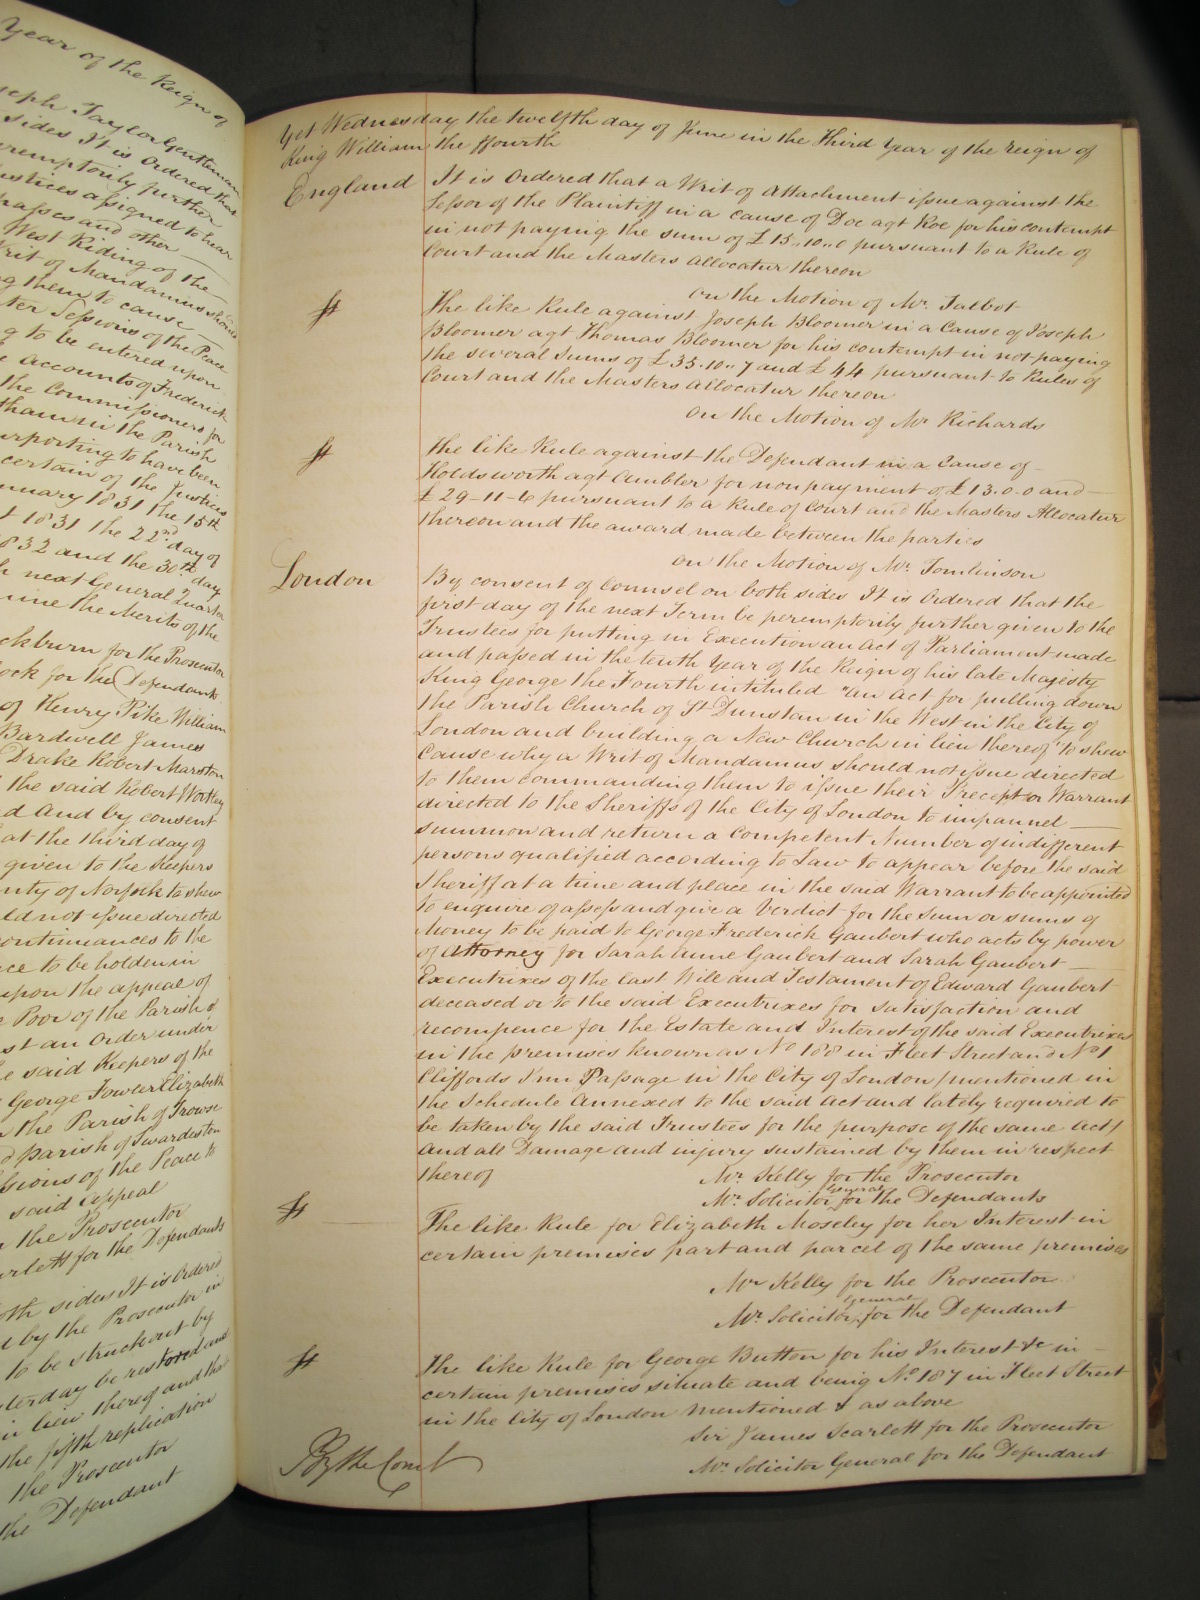 Year of the Reign of
seph Taylor Gentleman
sides It is Ordered that
remptorily further
ustices assigned to hear
passes and other
West Riding of the
Writ of Mandamus should
g them to cause
ter Sessions of the Peace
g to be entered upon
e accounts of Frederick
the Commissioners for
tham in the Parish
urporting to have been
certain of the Justices
nuary 1831 the 15th
t 1831 the 22nd day of
832 and the 30th day
h next General Quarter
mine the Merits of the
ckburn for the Prosecutor
ock for the Defendants
of Henry Pike William
Bardwell James
Drake Robert Marston
the said Robert Wortley
d And by consent
at the third day of
given to the Keepers
nty of Norfolk to shew
ld not issue directed
continuances to the
ce to be holden in
upon the appeal of
e Poor of the Parish of
st an Order under
e said Keepers of the
George Towar Elizabeth
n the Parish of Trowse
d Parish of Swardeston
ssions of the Peace to
said appeal
r the Prosecutor
arlett for the Defendants
oth sides It is Ordered
d by the Prosecutor in
to be struck out by
sterday be restored and
in lieu thereof and that
the fifth replication
the Prosecutor
the Defendant
Yet Wednesday the twelfth day of June in the Third Year of the reign of
King William the ffourth
England It is Ordered that a Writ of Attachment issue against the
Lessor of the Plaintiff in a cause of Doe agt Roe for his contempt
in not paying the sum of £15..10..0 pursuant to a Rule of
Court and the Masters allocatur thereon
on the Motion of Mr. Talbot
The like Rule against Joseph Bloomer in a Cause of Joseph
Bloomer agt Thomas Bloomer for his contempt in not paying
the several Sums of £35.10..7 and £44 pursuant to Rules of
Court and the Masters allocatur thereon
on the Motion of Mr Richards
the like Rule against the Defendant in a Cause of
Holdsworth agt Ambler for nonpayment of £13.0.0 and
£29-11-6 pursuant to a Rule of Court and the Masters Allocatur
thereon and the award made between the parties
on the Motion of Mr. Tomlinson
London By consent of Counsel on both sides It is Ordered that the
first day of the next Term be peremptorily further given to the
Trustees for putting in Execution an Act of Parliament made
and passed in the tenth Year of the Reign of his late Majesty
King George the Fourth intituled "an Act for pulling down
the Parish Church of St Dunstan in the West in the City of
London and building a New Church in lieu thereof" to shew
Cause why a Writ of Mandamus should not issue directed
to them commanding them to issue their Precept or Warrant
directed to the Sheriffs of the City of London to impannel
summon and return a Competent Number of indifferent
persons qualified according to Law to appear before the said
Sheriff at a time and place in the said Warrant to be appointed
to enquire of assess and give a Verdict for the Sum or sums of
Money to be paid to George Frederick Gaubert who acts by power
of Attorney for Sarah Anne Gaubert and Sarah Gaubert
Executrixes of the last Will and Testament of Edward Gaubert
deceased or to the said Executrixes for satisfaction and
recompence for the Estate and Interest of the said Executrixes
in the premises known as No 188 in Fleet Street and No 1
Cliffords Inn Passage in the City of London (mentioned in
the Schedule Annexed to the said Act and lately required to
be taken by the said Trustees for the purpose of the same act)
and all Damage and injury sustained by them in respect
thereof Mr. Kelly for the Prosecutor
Mr. Solicitor General for the Defendants
The like Rule for Elizabeth Moseley for her Interest in
certain premises part and parcel of the same premises
Mr Kelly for the Prosecutor
Mr. Solicitor General for the Defendant
The like Rule for George Button for his Interest &c in
certain premises situate and being No. 187 in Fleet Street
in the City of London Mentioned & as above
Sir James Scarlett for the Prosecutor
Mr. Solicitor General for the Defendant
By the Court